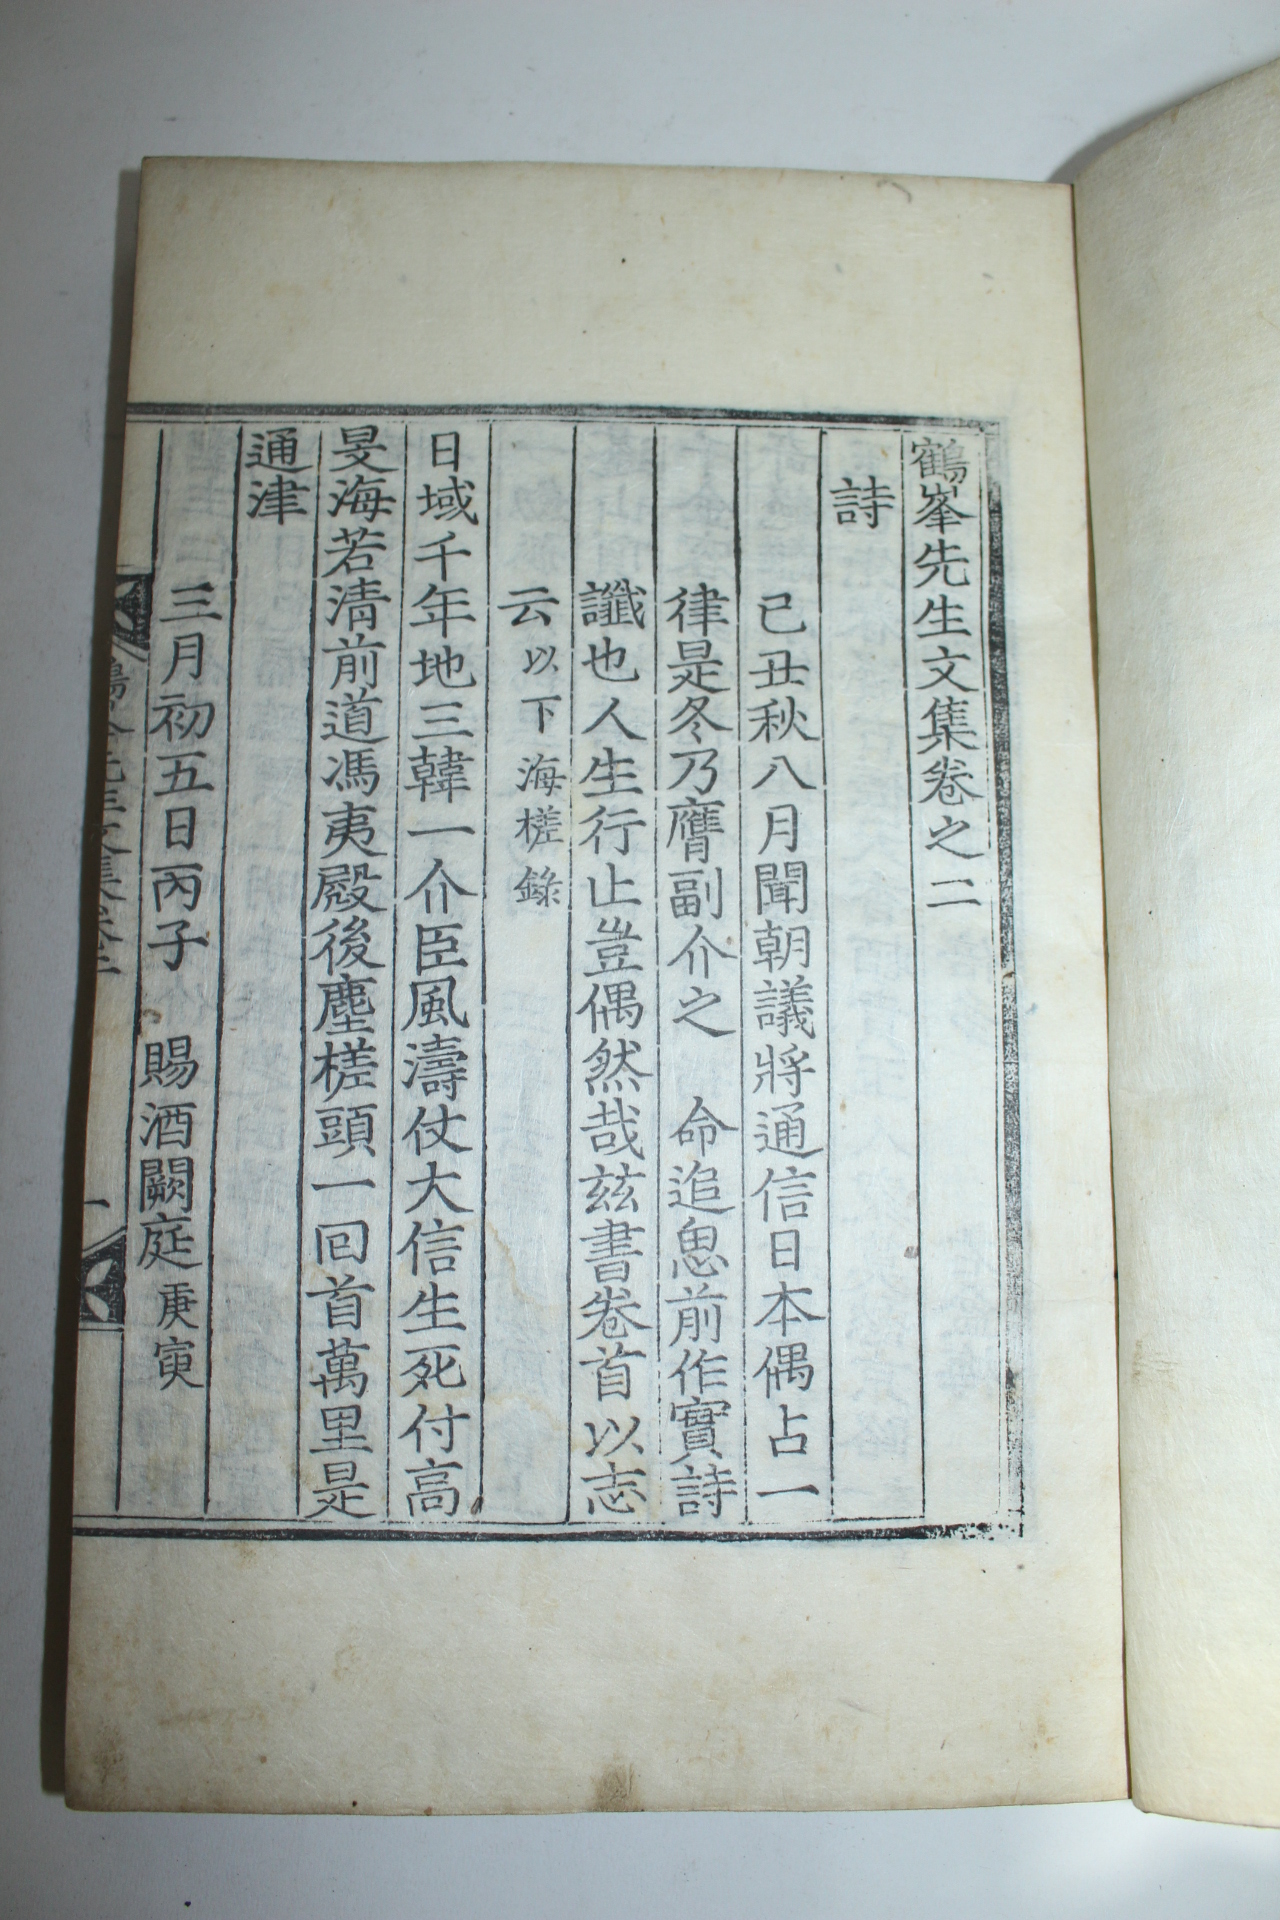 鶴峯先生文集卷之二
詩
己丑秋八月聞朝議將通信日本偶占一
律是冬乃膺副介之　命追思前作實詩
讖也人生行止豈偶然哉玆書卷首以志
云以下海槎錄
日域千年地三韓一介臣風濤仗大信生死付高
旻海若淸前道馮夷殿後塵槎頭一回首萬里是
通津
三月初五日丙子　賜酒闕庭庚寅
鶴峯先生文集卷二
一